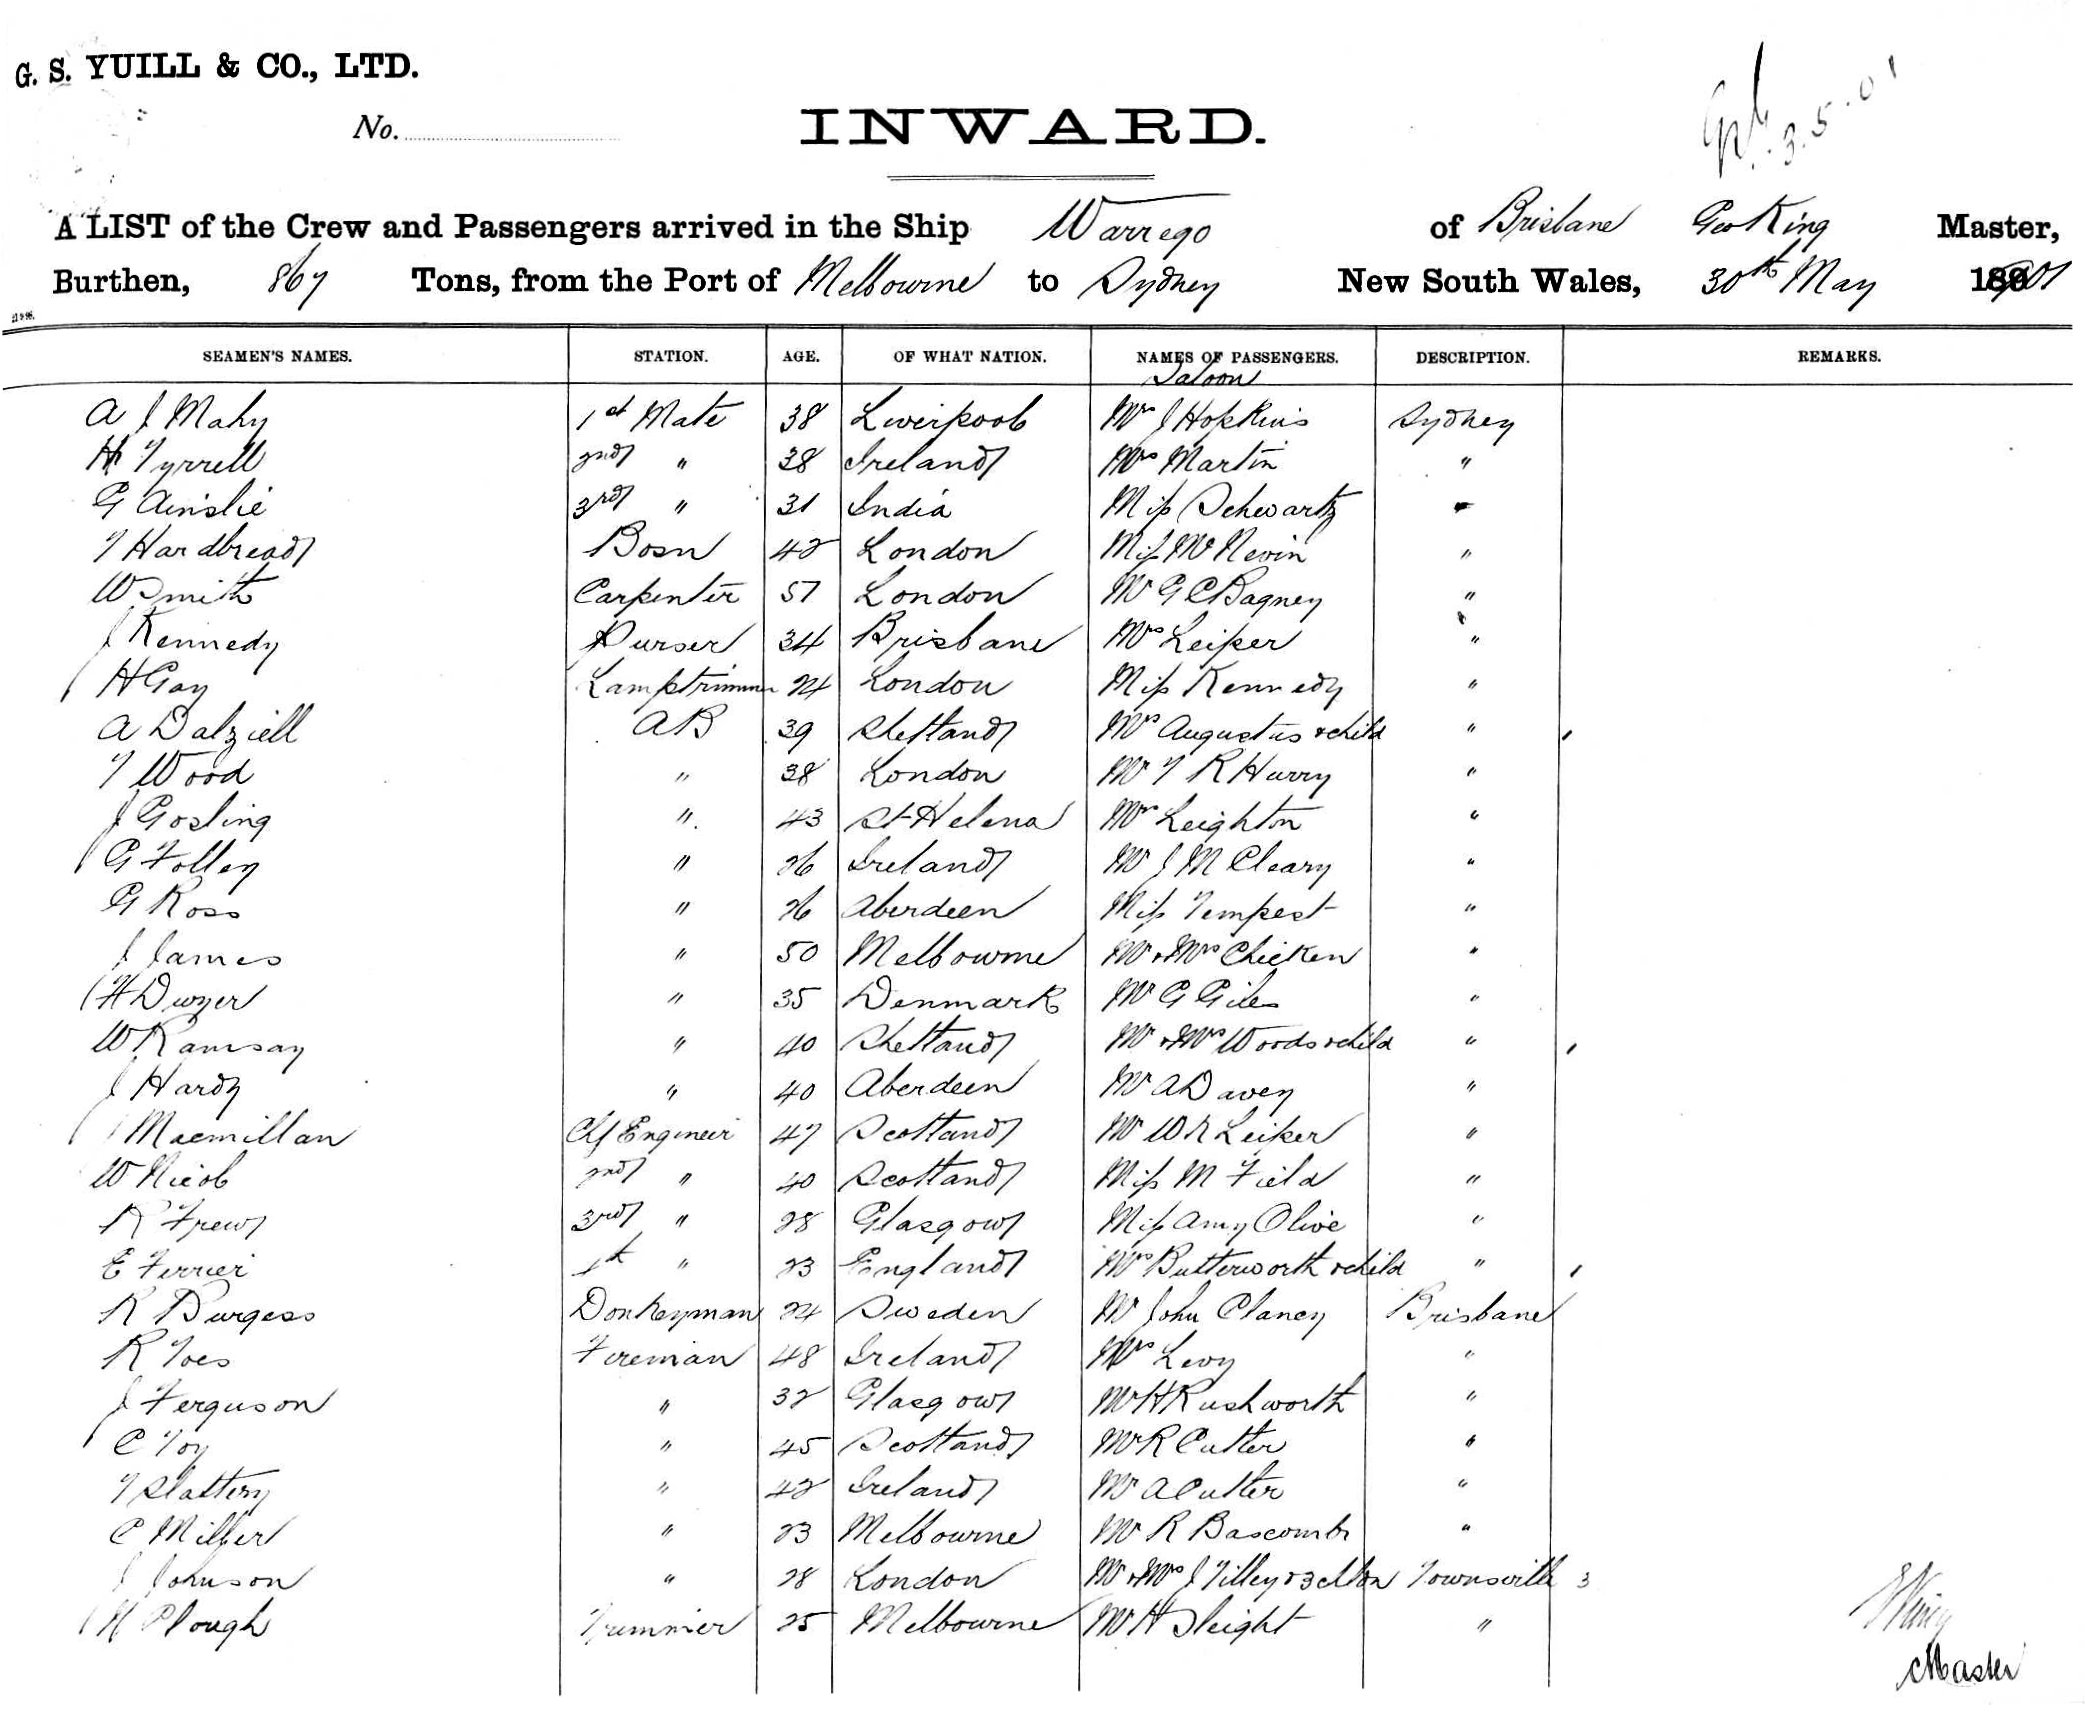 G. S. YUILL & CO., LTD.
No.
3.5.01
INWARD.
A LIST of the Crew and Passengers arrived in the Ship Warrego of Brisbane Geo King Master,
Burthen, 867 Tons, from the Port of Melbourne to Sydney New South Wales, 30th May 1901
SEAMEN'S NAMES. STATION. AGE. OF WHAT NATION. NAMES OF PASSENGERS. DESCRIPTION. REMARKS.
Saloon
A J Mahy 1st Mate 38 Liverpool Mrs J Hopkins Sydney
H Tyrrell 2nd " 38 Ireland Mrs Martin "
G Ainslie 3rd " 31 India Miss Schwartz "
T Hardbread Bosn 42 London Miss McNevin "
W Smith Carpenter 57 London Mr G C Bagney "
J Kennedy Purser 34 Brisbane Mrs Leiper "
H Gay Lamptrimmer 24 London Miss Kennedy "
A Dalziell AB 39 Shetland Mrs Augustus & child "
T Wood " 38 London Mr T R Hurry "
J Gosling " 43 St Helena Mrs Leighton "
G Folley " 26 Ireland Mr J M Cleary "
G Ross " 26 Aberdeen Miss Tempest "
J James " 50 Melbourne Mr & Mrs Chicken "
H Dwyer " 35 Denmark Mr G Giles "
W Ramsay " 40 Shetland Mr & Mrs Woods & child "
J Hardy " 40 Aberdeen Mr A Davey "
J Macmillan Chf Engineer 47 Scotland Mr W R Leiper "
W Nicol 2nd " 40 Scotland Miss M Field "
R Frew 3rd " 28 Glasgow Miss Amy Olive "
E Ferrier " 23 England Mrs Butterworth & child "
R Burgess Donkeyman 24 Sweden Mr John Clancy Brisbane
R Toes Fireman 48 Ireland Mrs Levy "
J Ferguson " 32 Glasgow Mr H Rushworth "
C Toy " 45 Scotland Mr R Cutter "
T Slattery " 42 Ireland Mr A Cutter "
C Miller " 23 Melbourne Mr R Bascomb "
J Johnson " 28 London Mr & Mrs J Tilley & 3 chdn Townsville 3
H Plough Trimmer 25 Melbourne Mr H Sleight "
Master